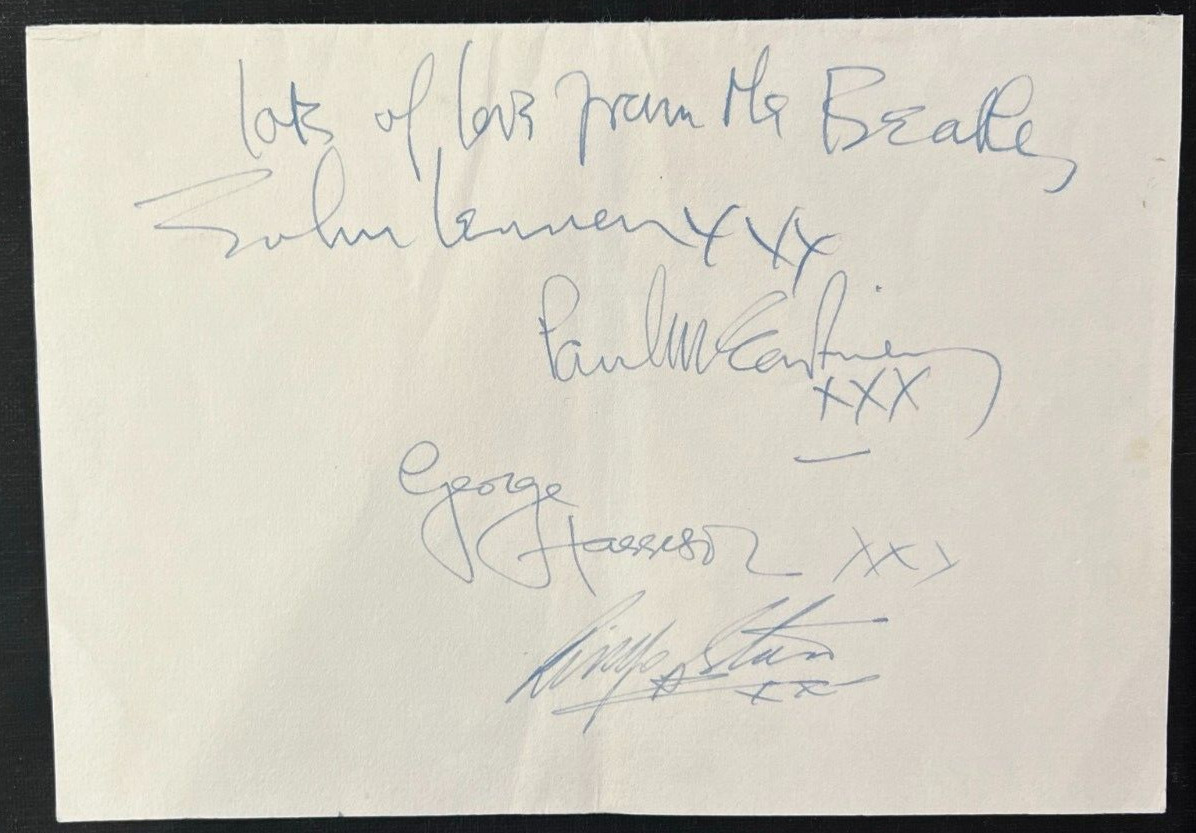 lots of love from the Beatles
John Lennon xxx
Paul McCartney
xxx
George
Harrison xxx
Ringo Starr
xx